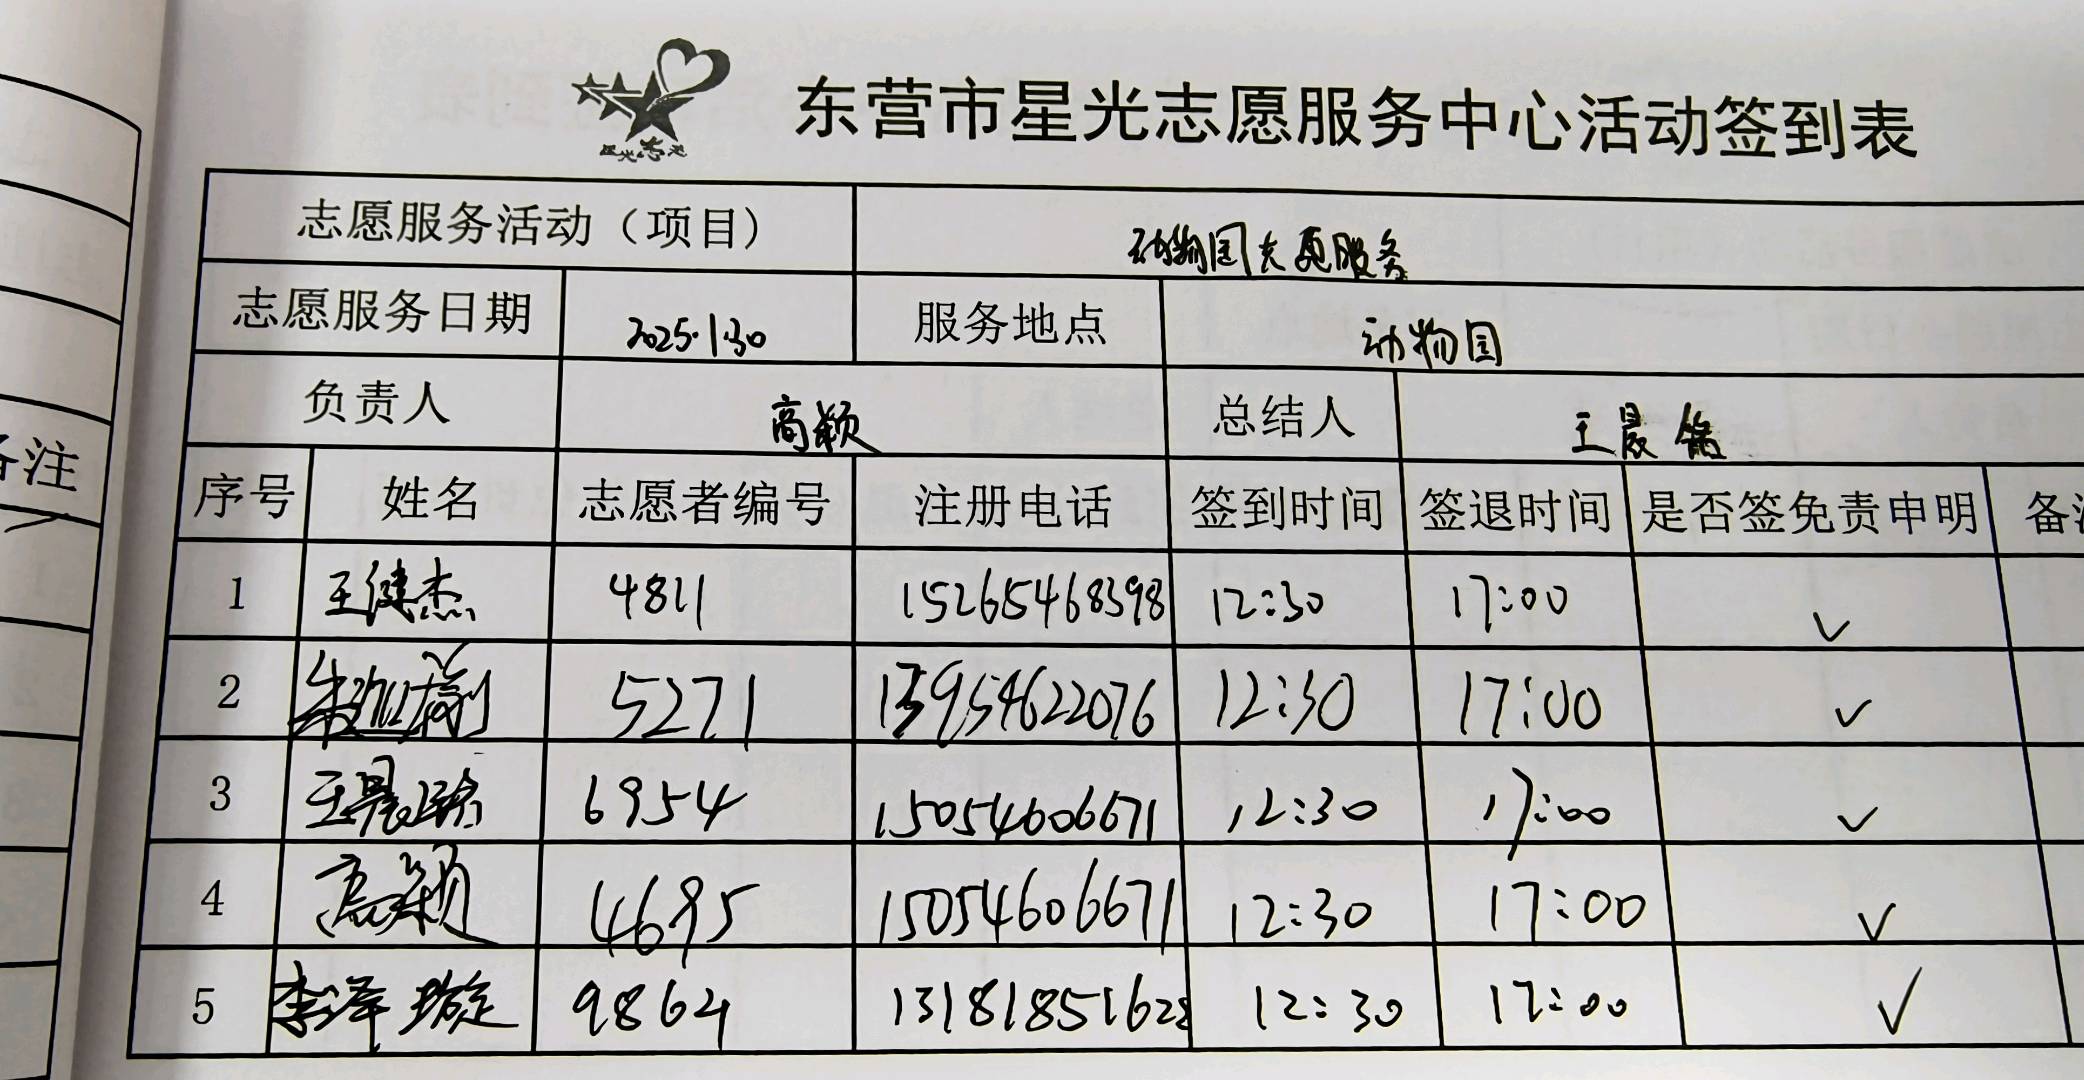 东营市星光志愿服务中心活动签到表
星光志愿
志愿服务活动（项目） 动物园志愿服务
志愿服务日期 2025.1.30 服务地点 动物园
负责人 高颖 总结人 王晨
序号 姓名 志愿者编号 注册电话 签到时间 签退时间 是否签免责申明 备注
1 王健杰 4811 15265468398 12:30 17:00 ✓
2 5271 13954622076 12:30 17:00 ✓
3 王晨 6954 15054606671 12:30 17:00 ✓
4 高颖 4695 15054606671 12:30 17:00 ✓
5 李泽璇 9864 13181851628 12:30 17:00 ✓
备注